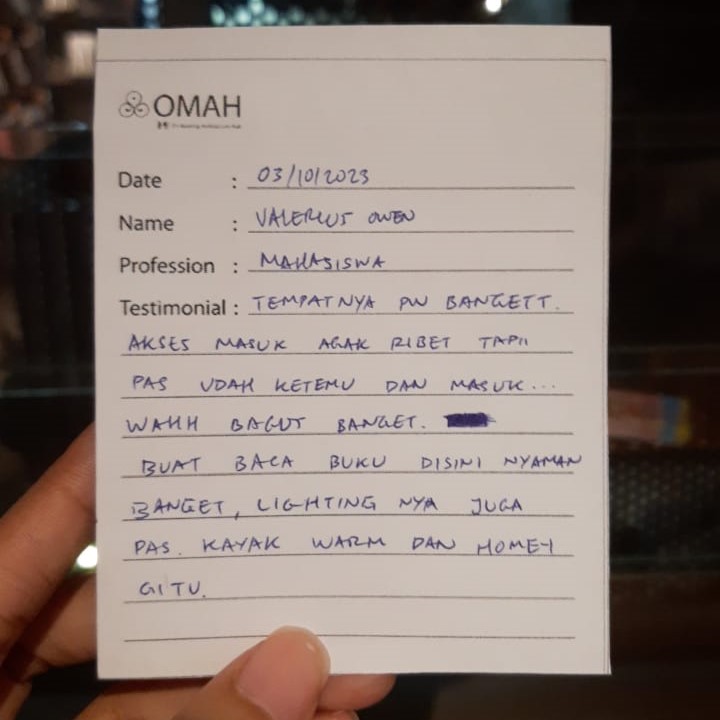 OMAH
Date : 03/10/2023
Name : VALERIUS OWEN
Profession : MAHASISWA
Testimonial : TEMPATNYA PW BANGETT.
AKSES MASUK AGAK RIBET TAPII
PAS UDAH KETEMU DAN MASUK...
WAHH BAGUS BANGET.
BUAT BACA BUKU DISINI NYAMAN
BANGET, LIGHTING NYA JUGA
PAS. KAYAK WARM DAN HOMEY
GITU.